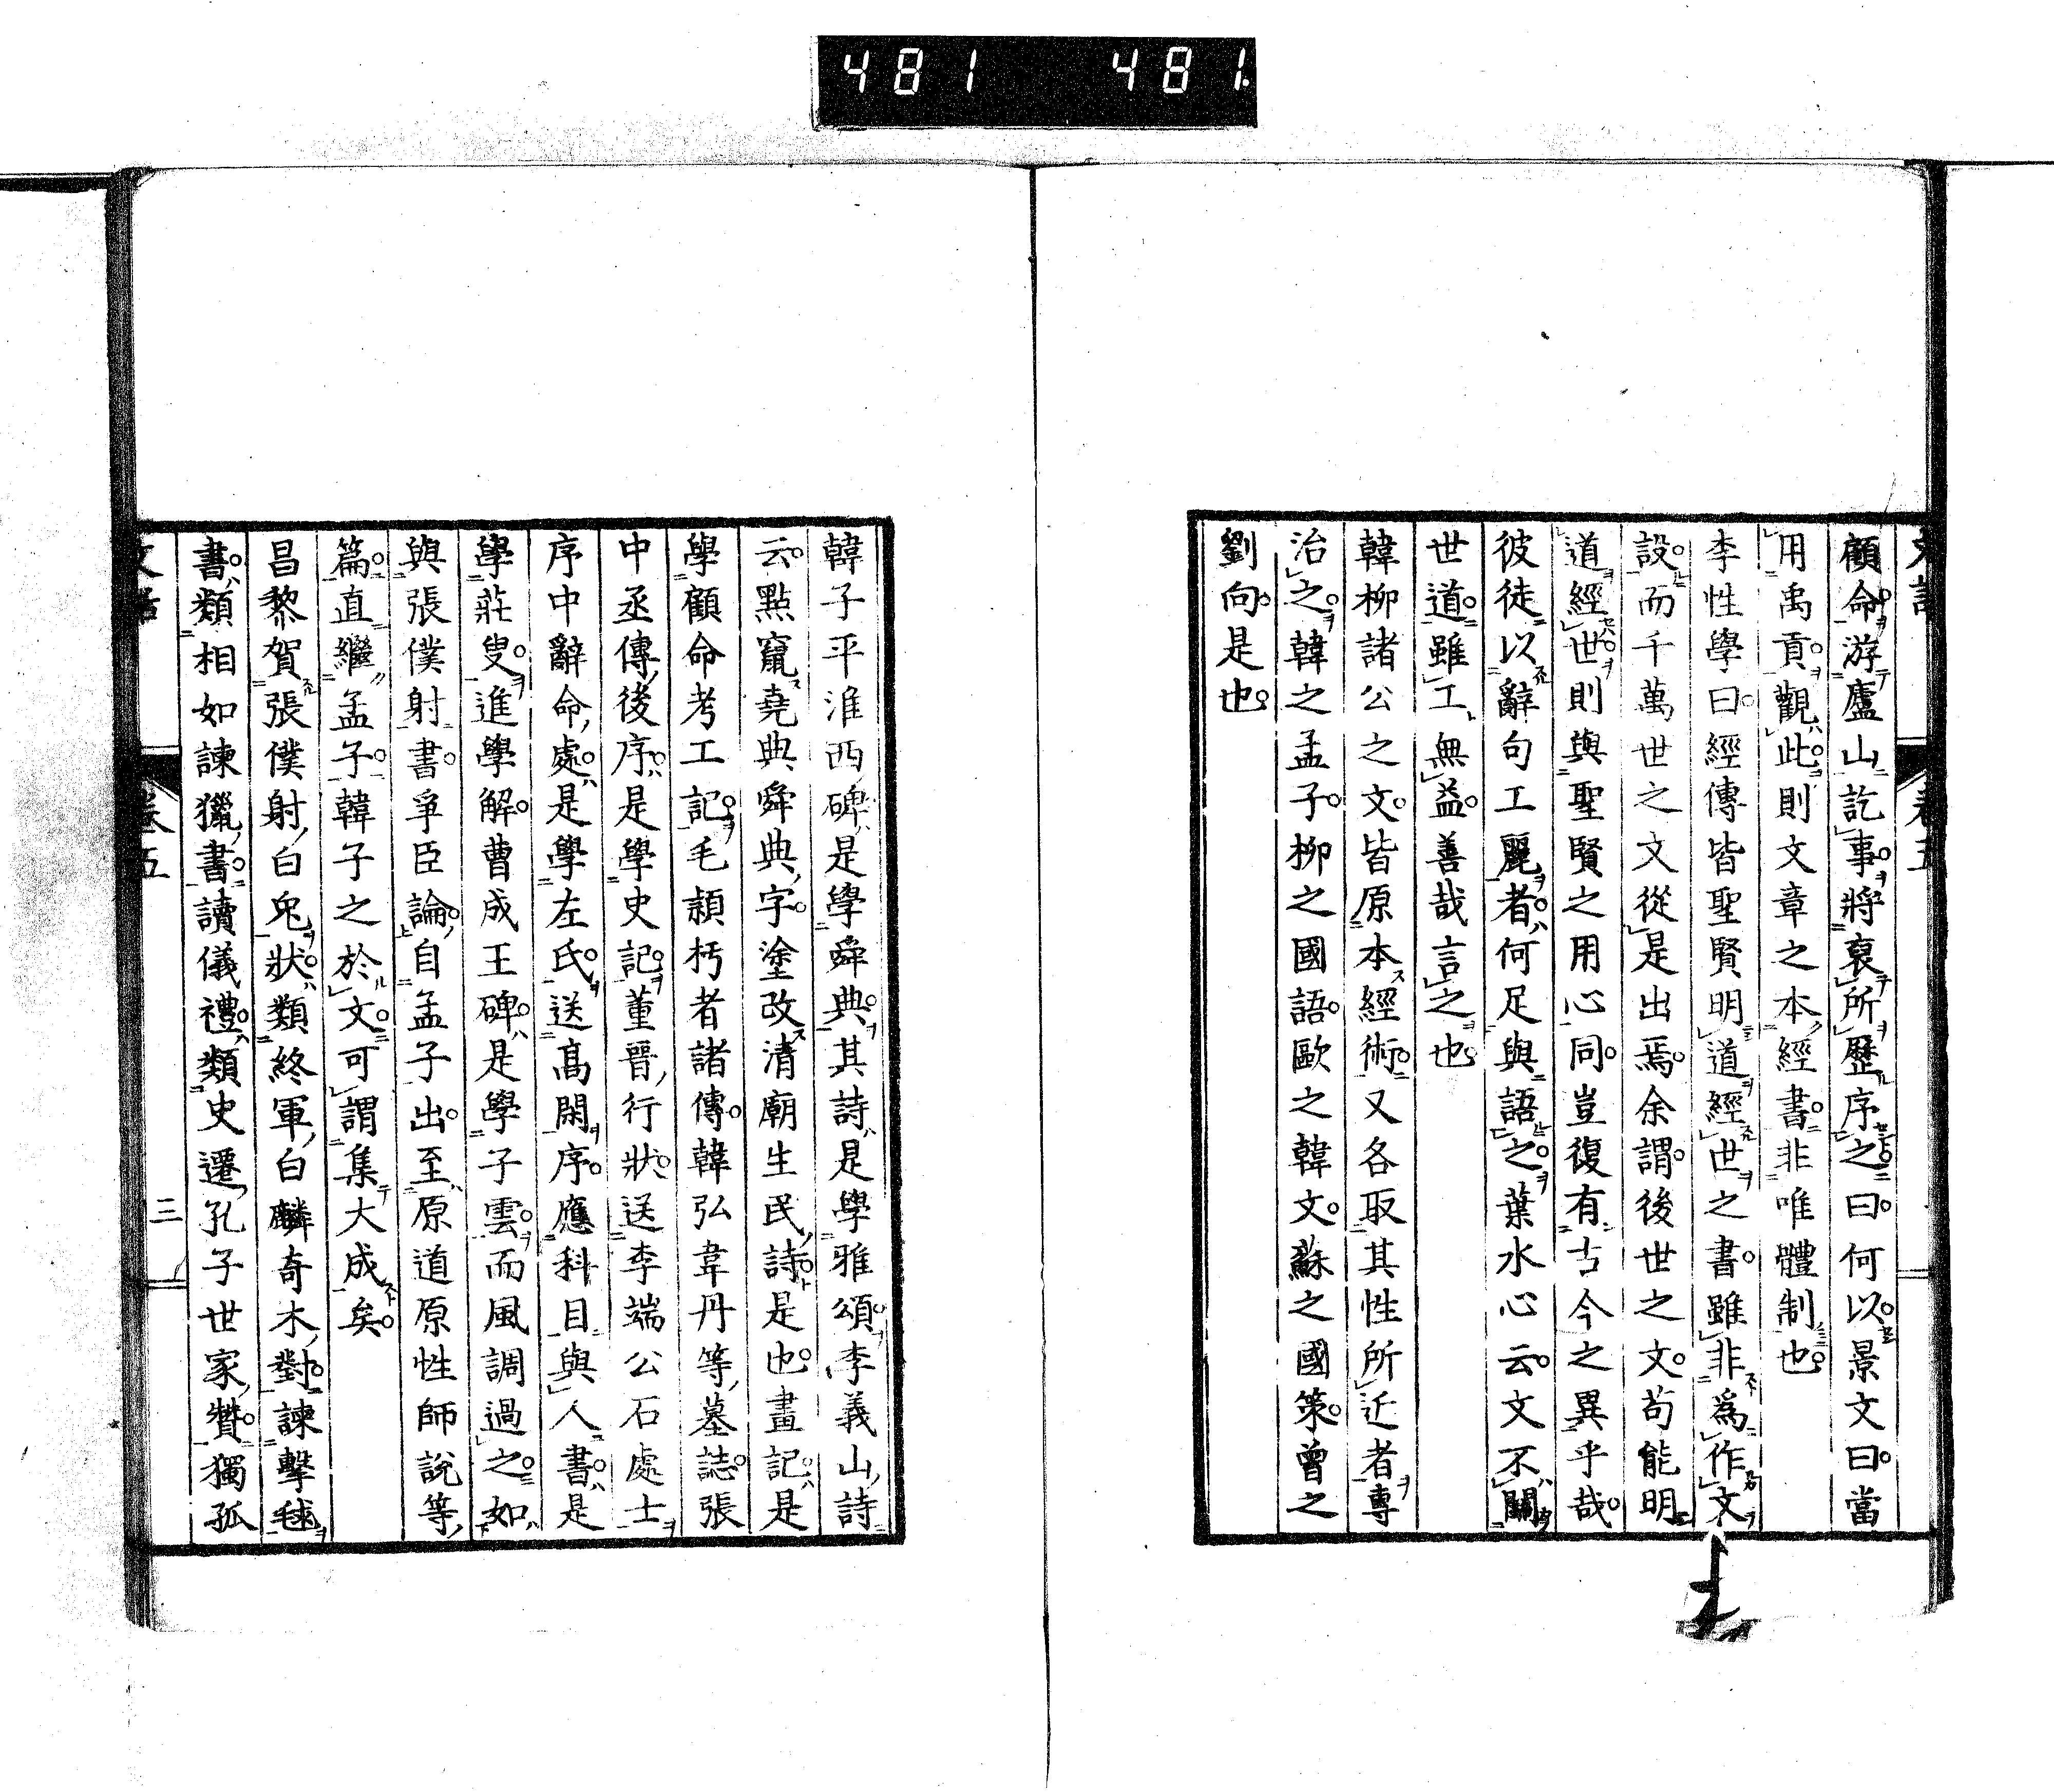 481 481
顧命游廬山訖事將裒所歷序之曰何以景文曰當
用禹貢觀此則文章之本經書非唯體制也
李性學曰經傳皆聖賢明道經世之書雖非爲作文
設而千萬世之文從是出焉余謂後世之文苟能明
道經世則與聖賢之用心同豈復有古今之異乎哉
彼徒以辭句工麗者何足與語之葉水心云文不關
世道雖工無益善哉言之也
韓柳諸公之文皆原本經術又各取其性所近者專
治之韓之孟子柳之國語歐之韓文蘇之國策曾之
劉向是也
韓子平淮西碑是學舜典其詩是學雅頌李義山詩
云點竄堯典舜典字塗改清廟生民詩是也畫記是
學顧命考工記毛頴杇者諸傳韓弘韋丹等墓誌張
中丞傳後序是學史記董晉行狀送李端公石處士
序中辭命處是學左氏送高閑序應科目與人書是
學莊叟進學解曹成王碑是學子雲而風調過之如
與張僕射書爭臣論自孟子出至原道原性師說等
篇直繼孟子韓子之於文可謂集大成矣
昌黎賀張僕射白兔狀類終軍白麟奇木對諫擊毬
書類相如諫獵書讀儀禮類史遷孔子世家贊獨孤
卷五
三